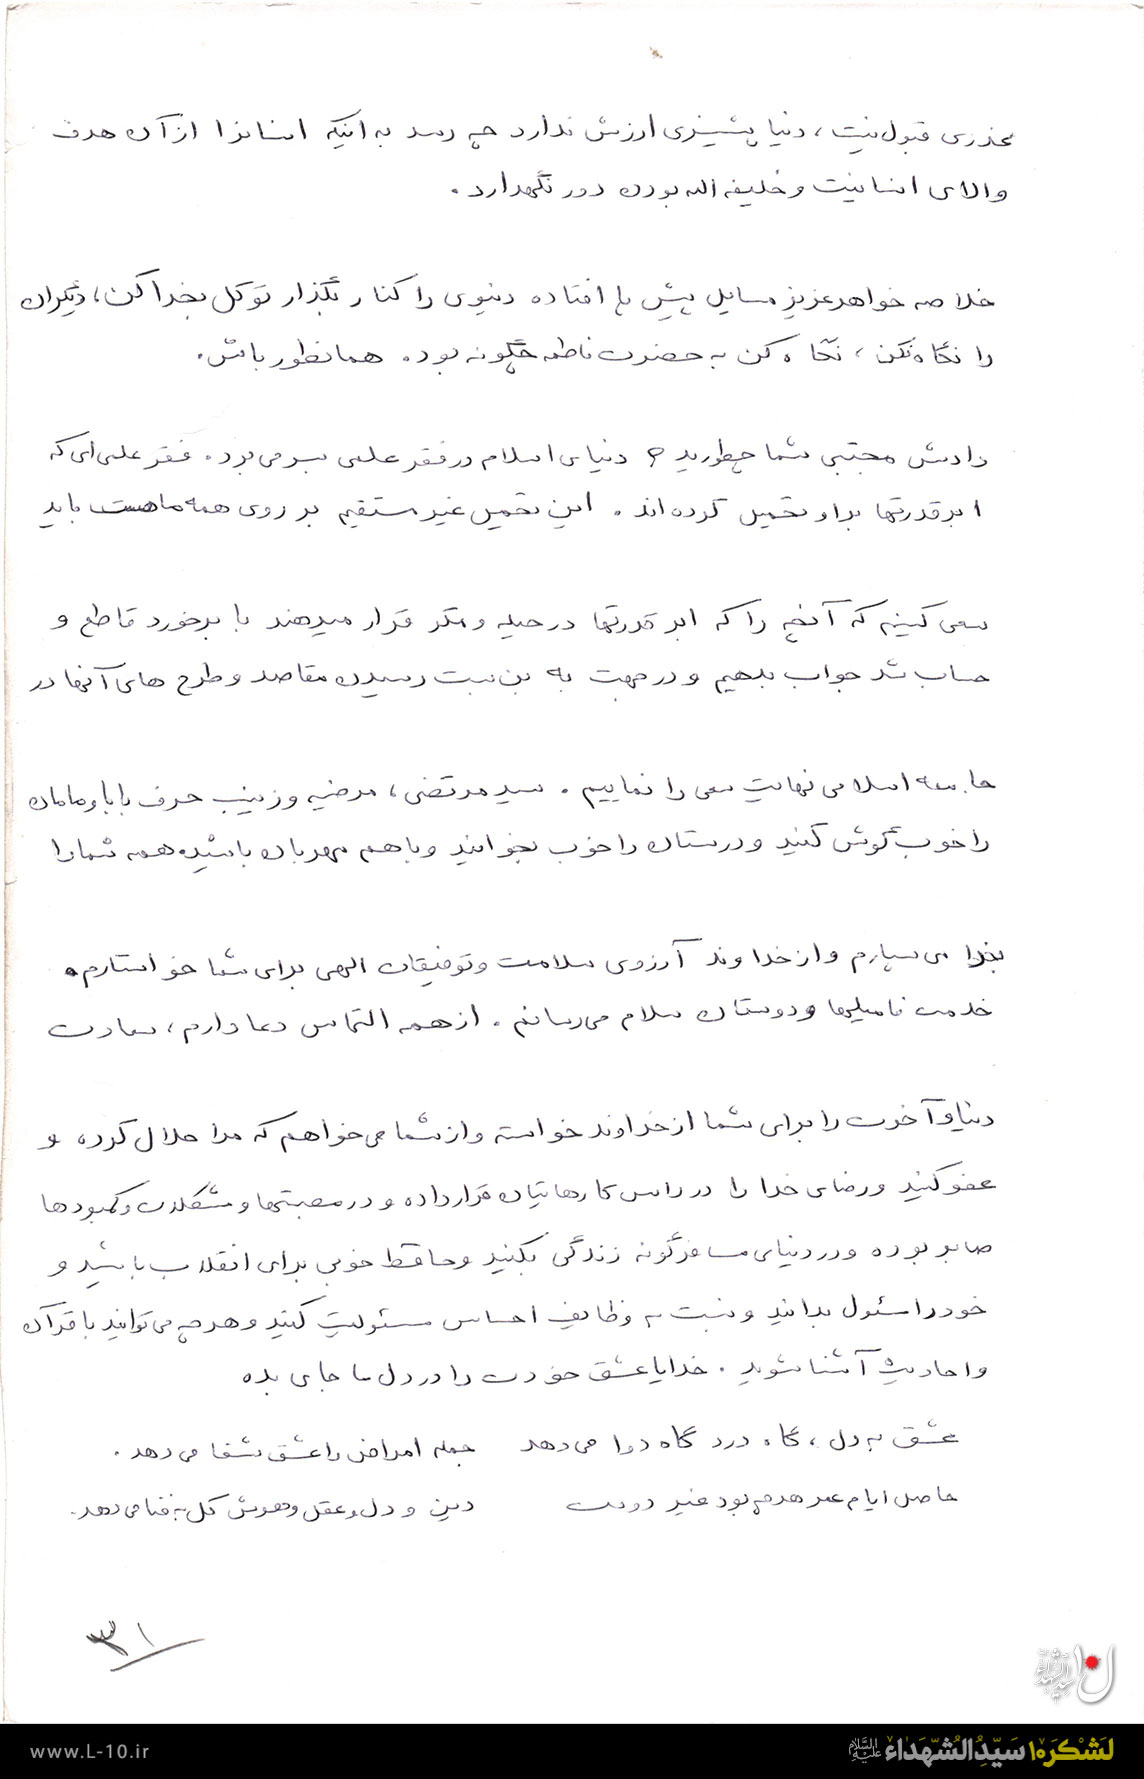 عذری قبول نیست، دنیا پشیزی ارزش ندارد چه رسد به اینکه انسانرا از آن هدف
والای انسانیت و خلیفه الله بودن دور نگهدارد.
خلاصه خواهر عزیز مسایل پیش پا افتاده دنیوی را کنار بگذار توکل بخدا کن، دیگران
را نگاه نکن، نگاه کن به حضرت فاطمه چگونه بود. همانطور باش.
داداش مجتبی شما چطورید؟ دنیای اسلام در فقر علمی بسر می برد. فقر علمی ای که
ابرقدرتها بر او تحمیل کرده اند. این تحمیل غیر مستقیم بر روی همه ما هست باید
سعی کنیم که آنچه را که ابر قدرتها در حیله و مکر قرار میدهند با برخورد قاطع و
حساب شد جواب بدهیم و در جهت به بن بست رسیدن مقاصد و طرح های آنها در
جامعه اسلامی نهایت سعی را نماییم. سید مرتضی، مرضیه و زینب حرف بابا و مامان
را خوب گوش کنید و درستان را خوب بخوانید و با هم مهربان باشید. همه شما را
بخدا می سپارم و از خداوند آرزوی سلامت و توفیقات الهی برای شما خواستارم.
خدمت فامیلها و دوستان سلام می رسانم. از همه التماس دعا دارم، سعادت
دنیا و آخرت را برای شما از خداوند خواسته و از شما می خواهم که مرا حلال کرده و
عفو کنید و رضای خدا را در راس کارهایتان قرار داده و در مصیبتها و مشکلات و کمبودها
صابر بوده و در دنیای مسافرگونه زندگی بکنید و حافظ خوبی برای انقلاب باشید و
خود را مسئول بدانید و نسبت به وظایف احساس مسئولیت کنید و هر چه می توانید با قرآن
و احادیث آشنا شوید. خدایا عشق خودت را در دل ما جای بده
عشق به دل، گاه درد گاه دوا می دهد جمله امراض را عشق شفا می دهد.
حاصل ایام عمر هر چه بود غیر دوست دین و دل و عقل و هوش کل به فنا می دهد.
۳۱
ل۱۰ سیدالشهداء
www.L-10.ir
لَشْکَر۱۰ سَیّدُالشّهَداء عَلَیْهِ السَّلام